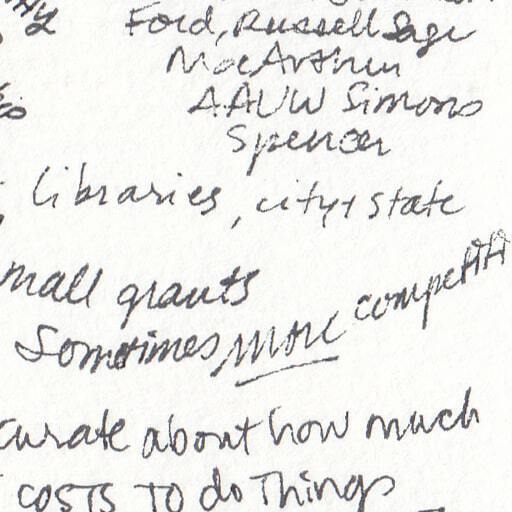 Ford, Russell Sage
MacArthur
AAUW Simons
Spencer
libraries, city + state
mall grants
Sometimes more competiti
curate about how much
costs to do things